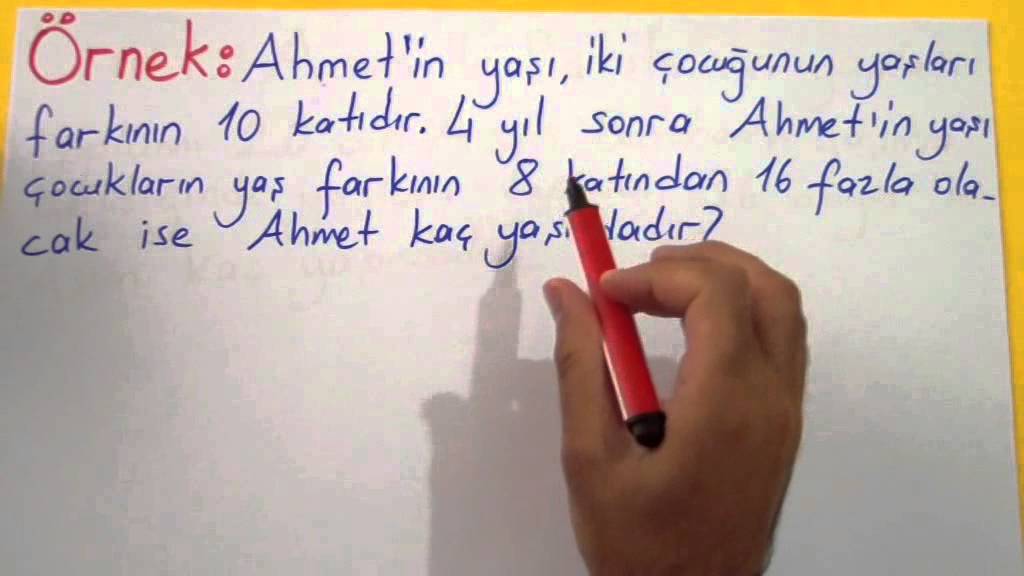 Örnek: Ahmet'in yaşı, iki çocuğunun yaşları
farkının 10 katıdır. 4 yıl sonra Ahmet'in yaşı
çocukların yaş farkının 8 katından 16 fazla ola-
cak ise Ahmet kaç yaşındadır?